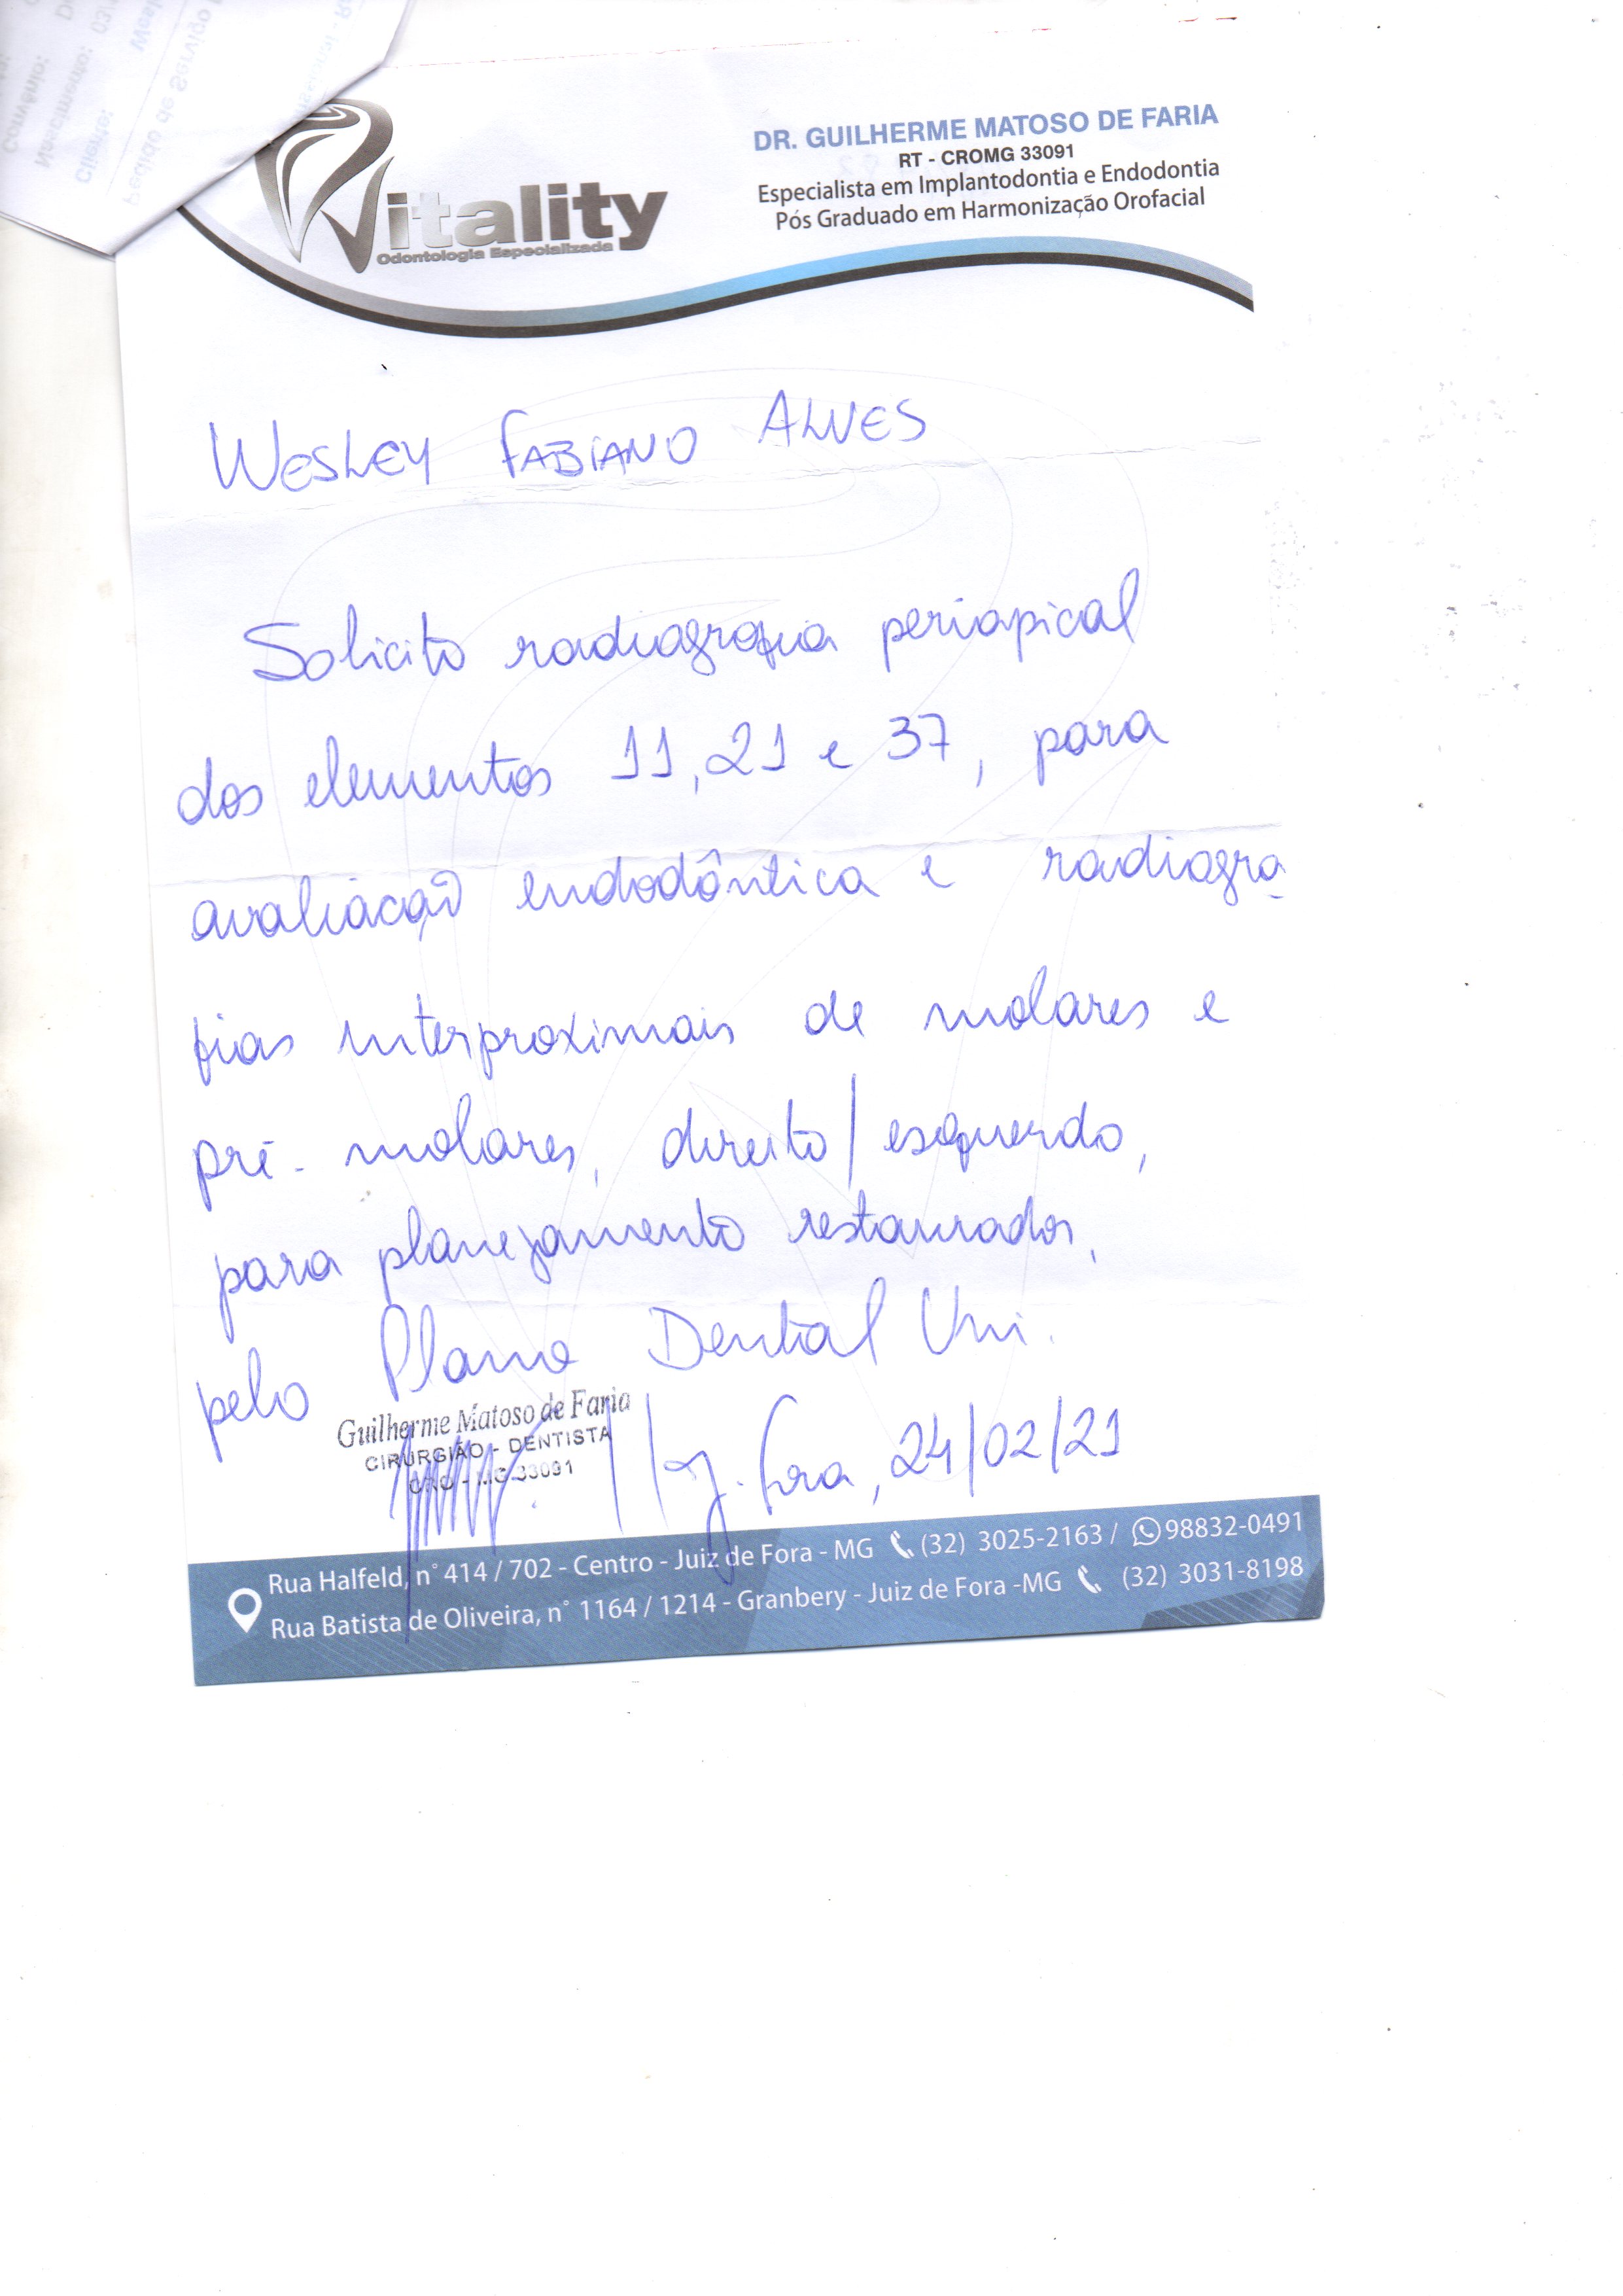 Convênio:
Nascimento: 03/
Cliente: Wesl
Pedido de Serviço
Vitality
Odontologia Especializada
DR. GUILHERME MATOSO DE FARIA
RT - CROMG 33091
Especialista em Implantodontia e Endodontia
Pós Graduado em Harmonização Orofacial
WESLEY FABIANO ALVES
Solicito radiografia periapical
dos elementos 11, 21 e 37, para
avaliação endodôntica e radiogra-
fias interproximais de molares e
pré-molares, direito/esquerdo,
para planejamento restaurador,
pelo Plano Dental Uni.
Guilherme Matoso de Faria
CIRURGIÃO - DENTISTA
CRO - MG 33091
J. Fora, 24/02/21
Rua Halfeld, n° 414 / 702 - Centro - Juiz de Fora - MG (32) 3025-2163 / 98832-0491
Rua Batista de Oliveira, n° 1164 / 1214 - Granbery - Juiz de Fora -MG (32) 3031-8198